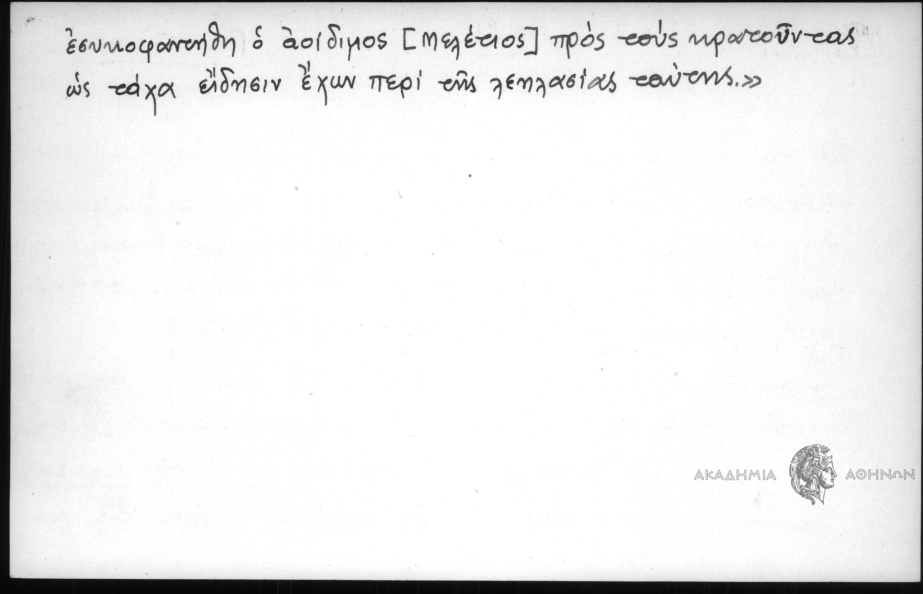 ἐσυκοφαντήθη ὁ ἀοίδιμος [Μελέτιος] πρὸς τοὺς κρατοῦντας
ὡς τάχα εἴδησιν ἔχων περὶ τῆς λεηλασίας ταύτης.»
ΑΚΑΔΗΜΙΑ ΑΘΗΝΩΝ